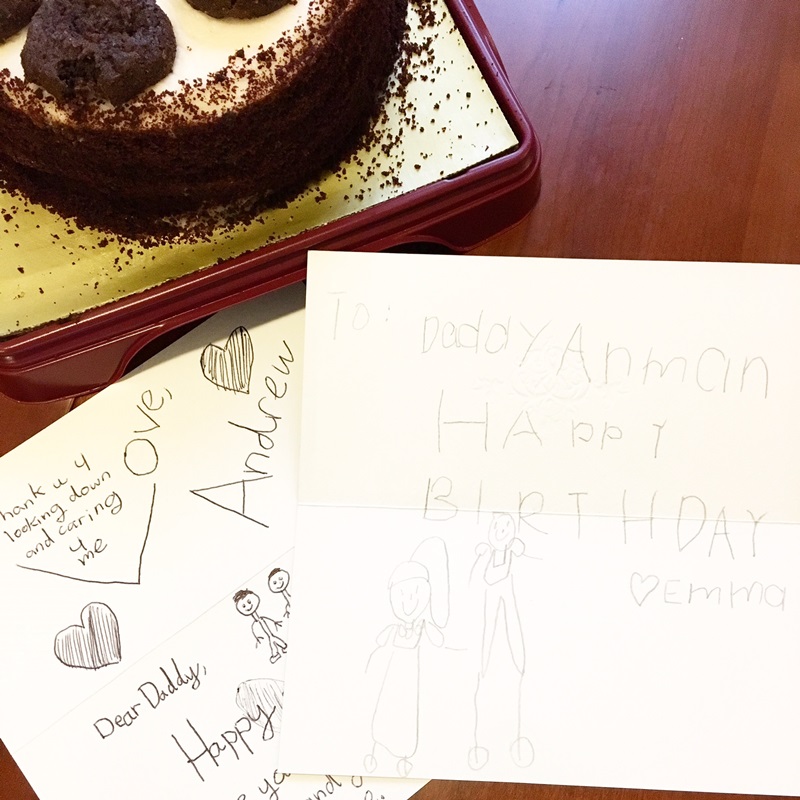 To: Daddy Anman
HAPPY
BIRTHDAY
♡ Emma
Love,
Andrew
hank u 4
looking down
and caring
4
me
Dear Daddy,
Happy